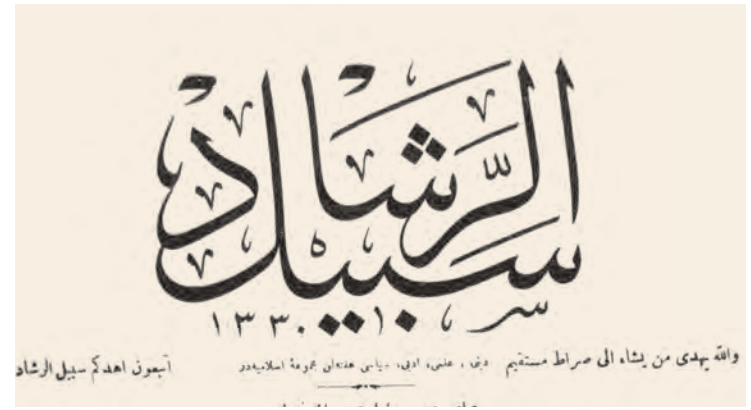 سبيل الرّشاد
١٣٣٠
والله يهدى من يشاء الى صراط مستقيم
دينى ، علمى ، ادبى ، سياسى هفته‌لق مجموعۀ اسلاميه‌در
اتبعون اهدكم سبيل الرشاد